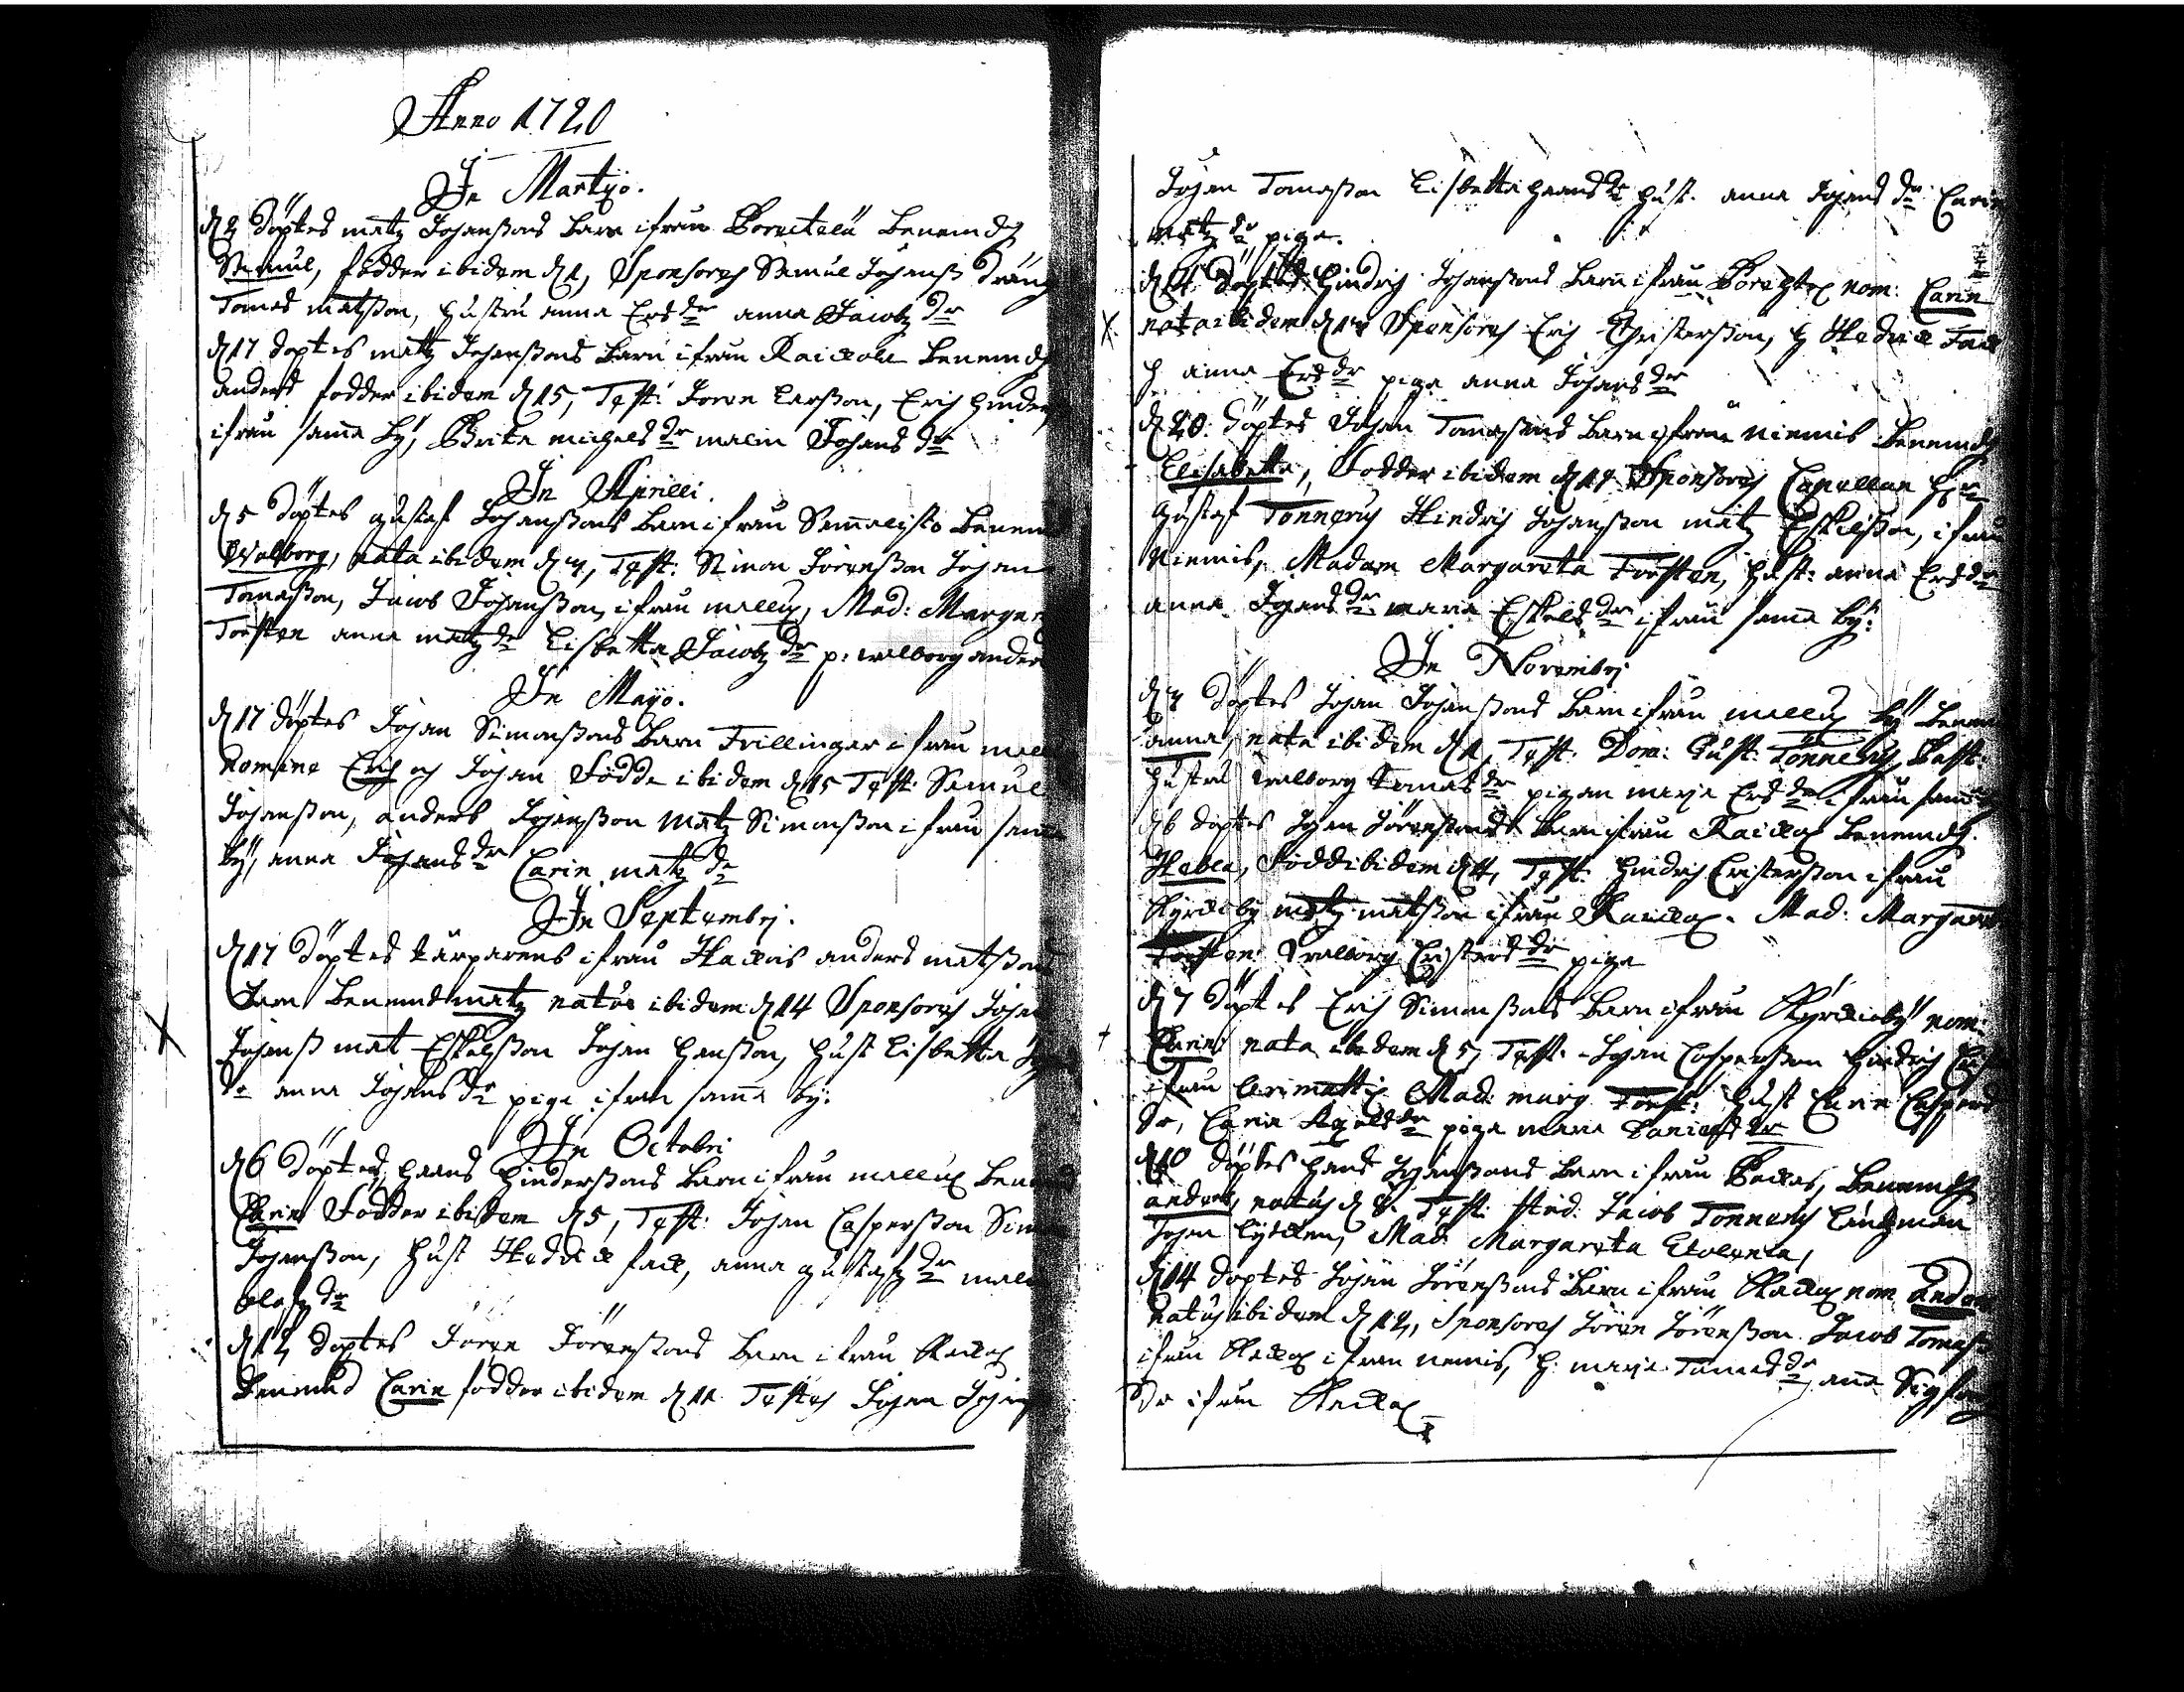 Anno 1720
In Martyo.
d 2 döptes matz Johanßons barn ifrån Borritalu benemdh
Samul, födder ibidem d 1, Sponsores Samul Johanß dräng
Tomas matßon, hustru anna Ersdr anna Jacobzdr
d 17 doptes matz Johanßons barn ifrån Raickole benemdh
anders fodder ibidem d 15, Test: Joren Larßon, Erich hinders
ifrån samma by, Brita michelsdr malin Johansdr
In Aprilli.
d 5 döptes gustaf Johanßons barn ifrån Sammalisto benem
Walborg, nata ibidem d 4, Test: Simon Jörenßon Johan
Tomaßon, Jacob Johanßon, ifrån mellux, Mad: Margar
Forsten anna matzdr Lisbetta Jacobzdr p: walborg anders
In Mayo.
d 17 döptes Johan Simonßons barn Tvillingar ifrån mell
Nomine Erich och Johan Födde ibidem d 15 Test: Samul
Johanßon, anders Johanßon matz Simonßon ifrån samma
by, anna Johansdr Carin matzdr
In Septembri.
d 17 döptes tårparens ifrån Hackois anders matßons
barn benemd matz natus ibidem d 14 Sponsores Johan
Johanß mat Eskelßon Johan hanßon, hust Lisbetta Joh
dr anna Johansdr piga ifrån samma by:
In Octobri
d 6 döptes haans hinderßons barn ifrån mellux ben
Carin Födder ibidem d 5, Test: Johan Casperßon Sim
Johanßon, hust Hedvick fack, anna gustafzdr mal
olofzdr
d 12 doptes Joren Jörenßons barn ifrån Rackox
benemd Carin fodder ibidem d 11 Testes Johan Johanß
Johan Tomaßon Lisbetta haansdr hust. anna Johansdr Carin
matzdr piga.
d 14 döptes hindrich Johanßons barn ifrån nom: Carin
nata ibidem d Sponsores Erich Christerßon, h Hedvick Fack
h anna Ersdr piga anna Johansdr
d 20 döptes Johan Tomasons barn ifrån Niemis benemdh
Elisabetha, Fodder ibidem d 19 Sponsores Capellan hr
gustaf Tonnerus Hindrich Johanßon matz Eskilßon, ifrån
Niemis, Madam Margareta Forsten, hust: anna Ersdr
anna Johansdr maria Eskelsdr ifrån sama by:
In Novembri
d 4 döptes Johan Johanßons barn ifrån mellux by benem
anna, nata ibidem d 1, Test: Dom: Gust: Tönnerus,
hustru Walborg Tomasdr pigan marja Ersdr ifrån sam
d 6 doptes Johan Jörenßons barn ifrån Raickox benemdh.
Hebla, Född ibidem d 4, Test: hindrich Christerßon ifrån
Kyrckby matz matßon ifrån Raickox. Mad: Margaret
Forsten Walborg Christersdr piga
d 7 döptes Erich Simonßons barn ifrån Kyrckioby nom:
Carin nata ibidem d 5, Test: Johan Casperßon hindrich
ifrån Mad: marg Forst: hust Carin Caspers
dr, Carin piga maria Danielsdr
d 10 döptes hans Johanßons barn ifrån Packas, benemdh
anders, natus d 8. Test: Stud: Jacob Tonnerus Länsman
Johan Mad: Margareta
d 14 doptes Johan Jörenßons barn ifrån Rackox nom Anders
natus ibidem d 12, Sponsores Jören Jörenßon Jacob Tomaß
ifrån Rackox ifrån nemis, h: marja Tomasdr, ana Sigfreds
dr ifrån Rackox